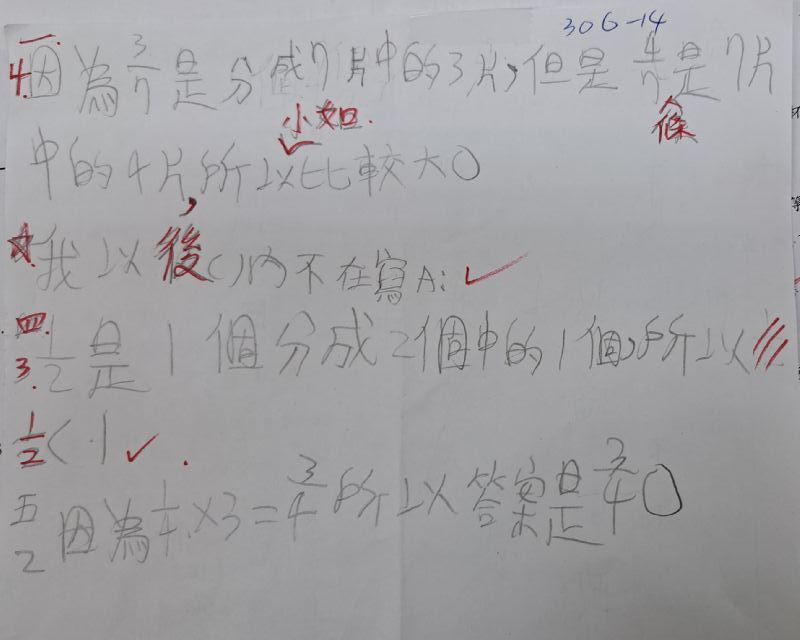 306-14
一.
4. 因為3/7是分成7片中的3片,但是4/7是7片
小如.
條
中的4片,所以比較大。
我以後( )內不在寫A:
四.
3. 1/2是1個分成2個中的1個,所以
1/2<1
五
2 因為1/4×3=3/4所以答案是3/4。